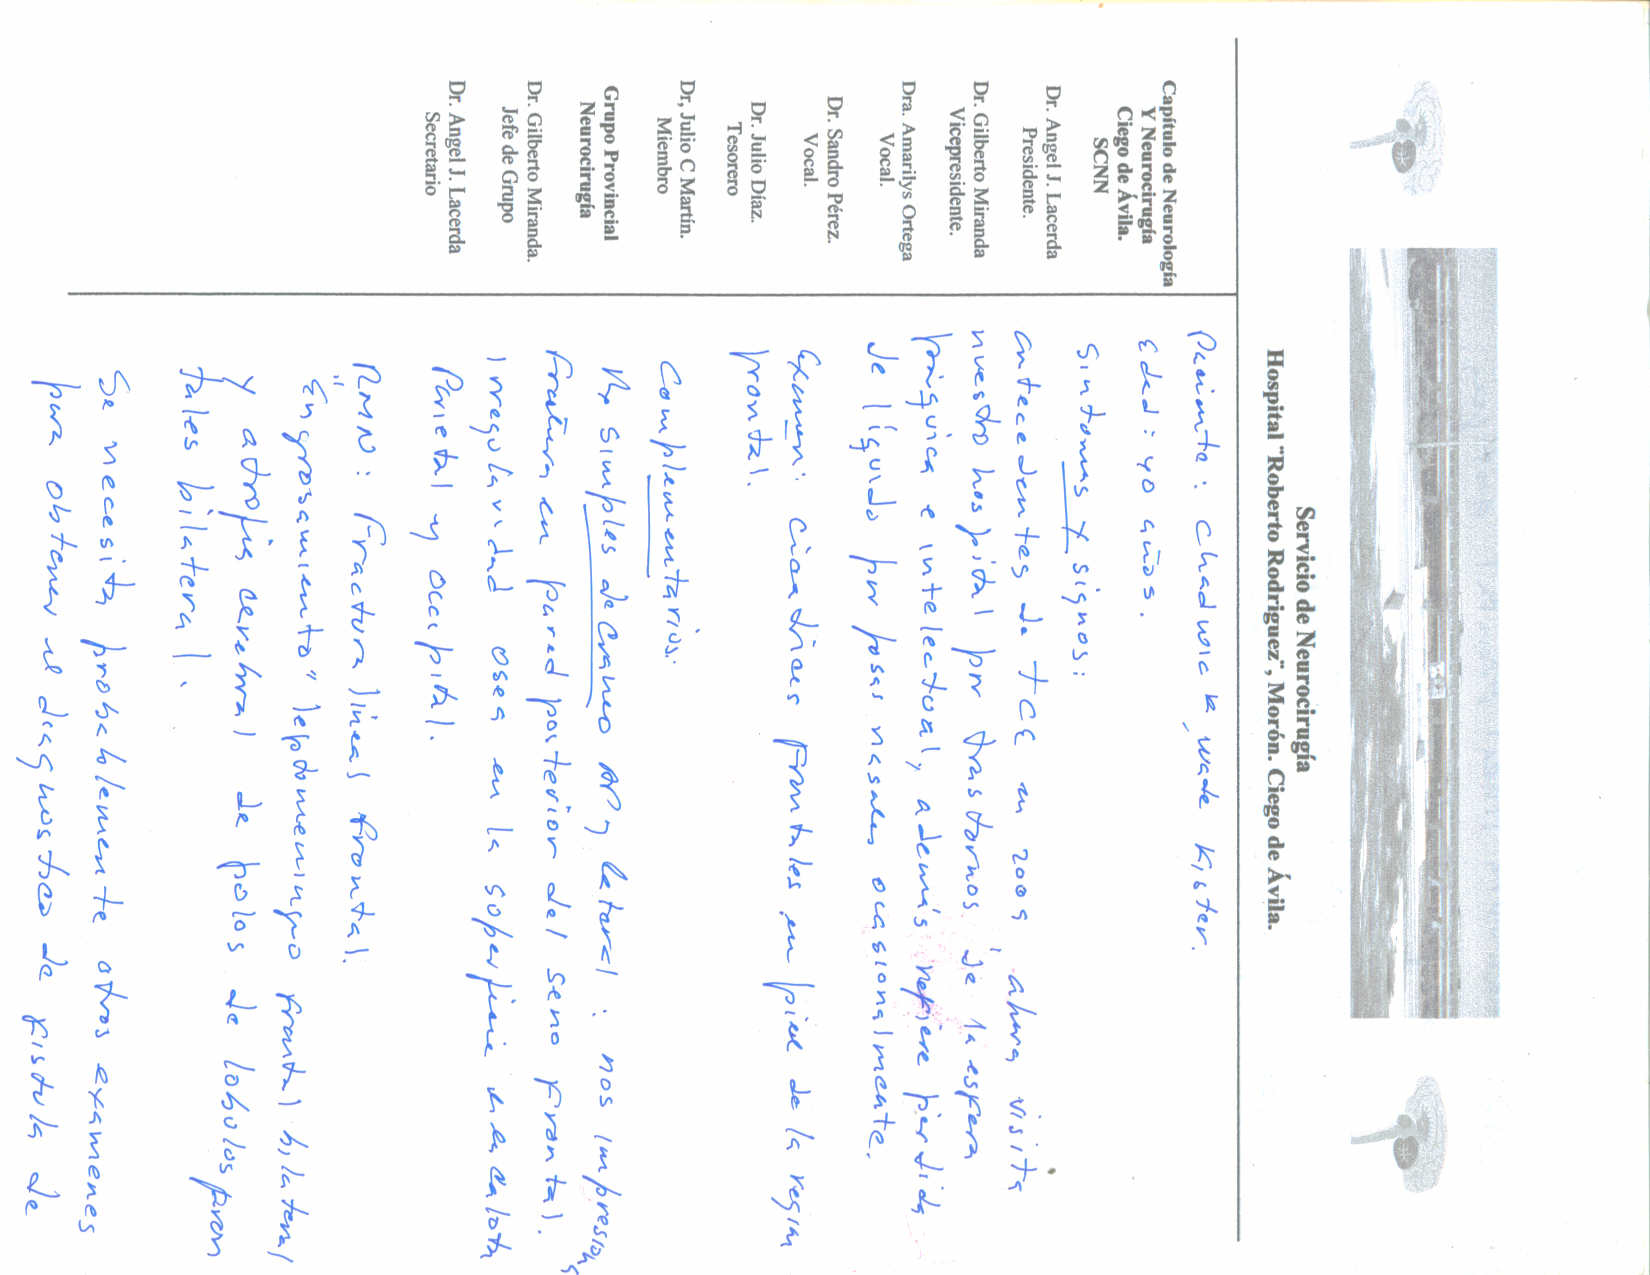 Servicio de Neurocirugía
Hospital "Roberto Rodriguez", Morón. Ciego de Ávila.
Capítulo de Neurología
Y Neurocirugía
Ciego de Ávila.
SCNN
Dr. Angel J. Lacerda
Presidente.
Dr. Gilberto Miranda
Vicepresidente.
Dra. Amarilys Ortega
Vocal.
Dr. Sandro Pérez.
Vocal.
Dr. Julio Díaz.
Tesorero
Dr, Julio C Martín.
Miembro
Grupo Provincial
Neurocirugía
Dr. Gilberto Miranda.
Jefe de Grupo
Dr. Angel J. Lacerda
Secretario
Paciente: Chadwick, wade Kister.
Edad: 40 años.
Sintomas y signos:
antecedentes de TCE en 2009, ahora visita
nuestro hospital por trastornos de la esfera
psíquica e intelectual, además refiere perdida
de líquido por fosas nasales ocasionalmente.
Examen: cicatrices frontales en piel de la region
frontal.
Complementarios:
Rx simples de craneo AP y lateral: nos impresiona
fractura en pared posterior del seno frontal.
Irregularidad osea en la superficie calota
Parietal y occipital.
RMN: Fractura lineal frontal.
"Engrosamiento" leptomeningeo frontal bilateral
y atrofia cerebral de polos de lobulos fron
tales bilateral.
Se necesita probablemente otros examenes
para obtener el diagnostico de fistula de